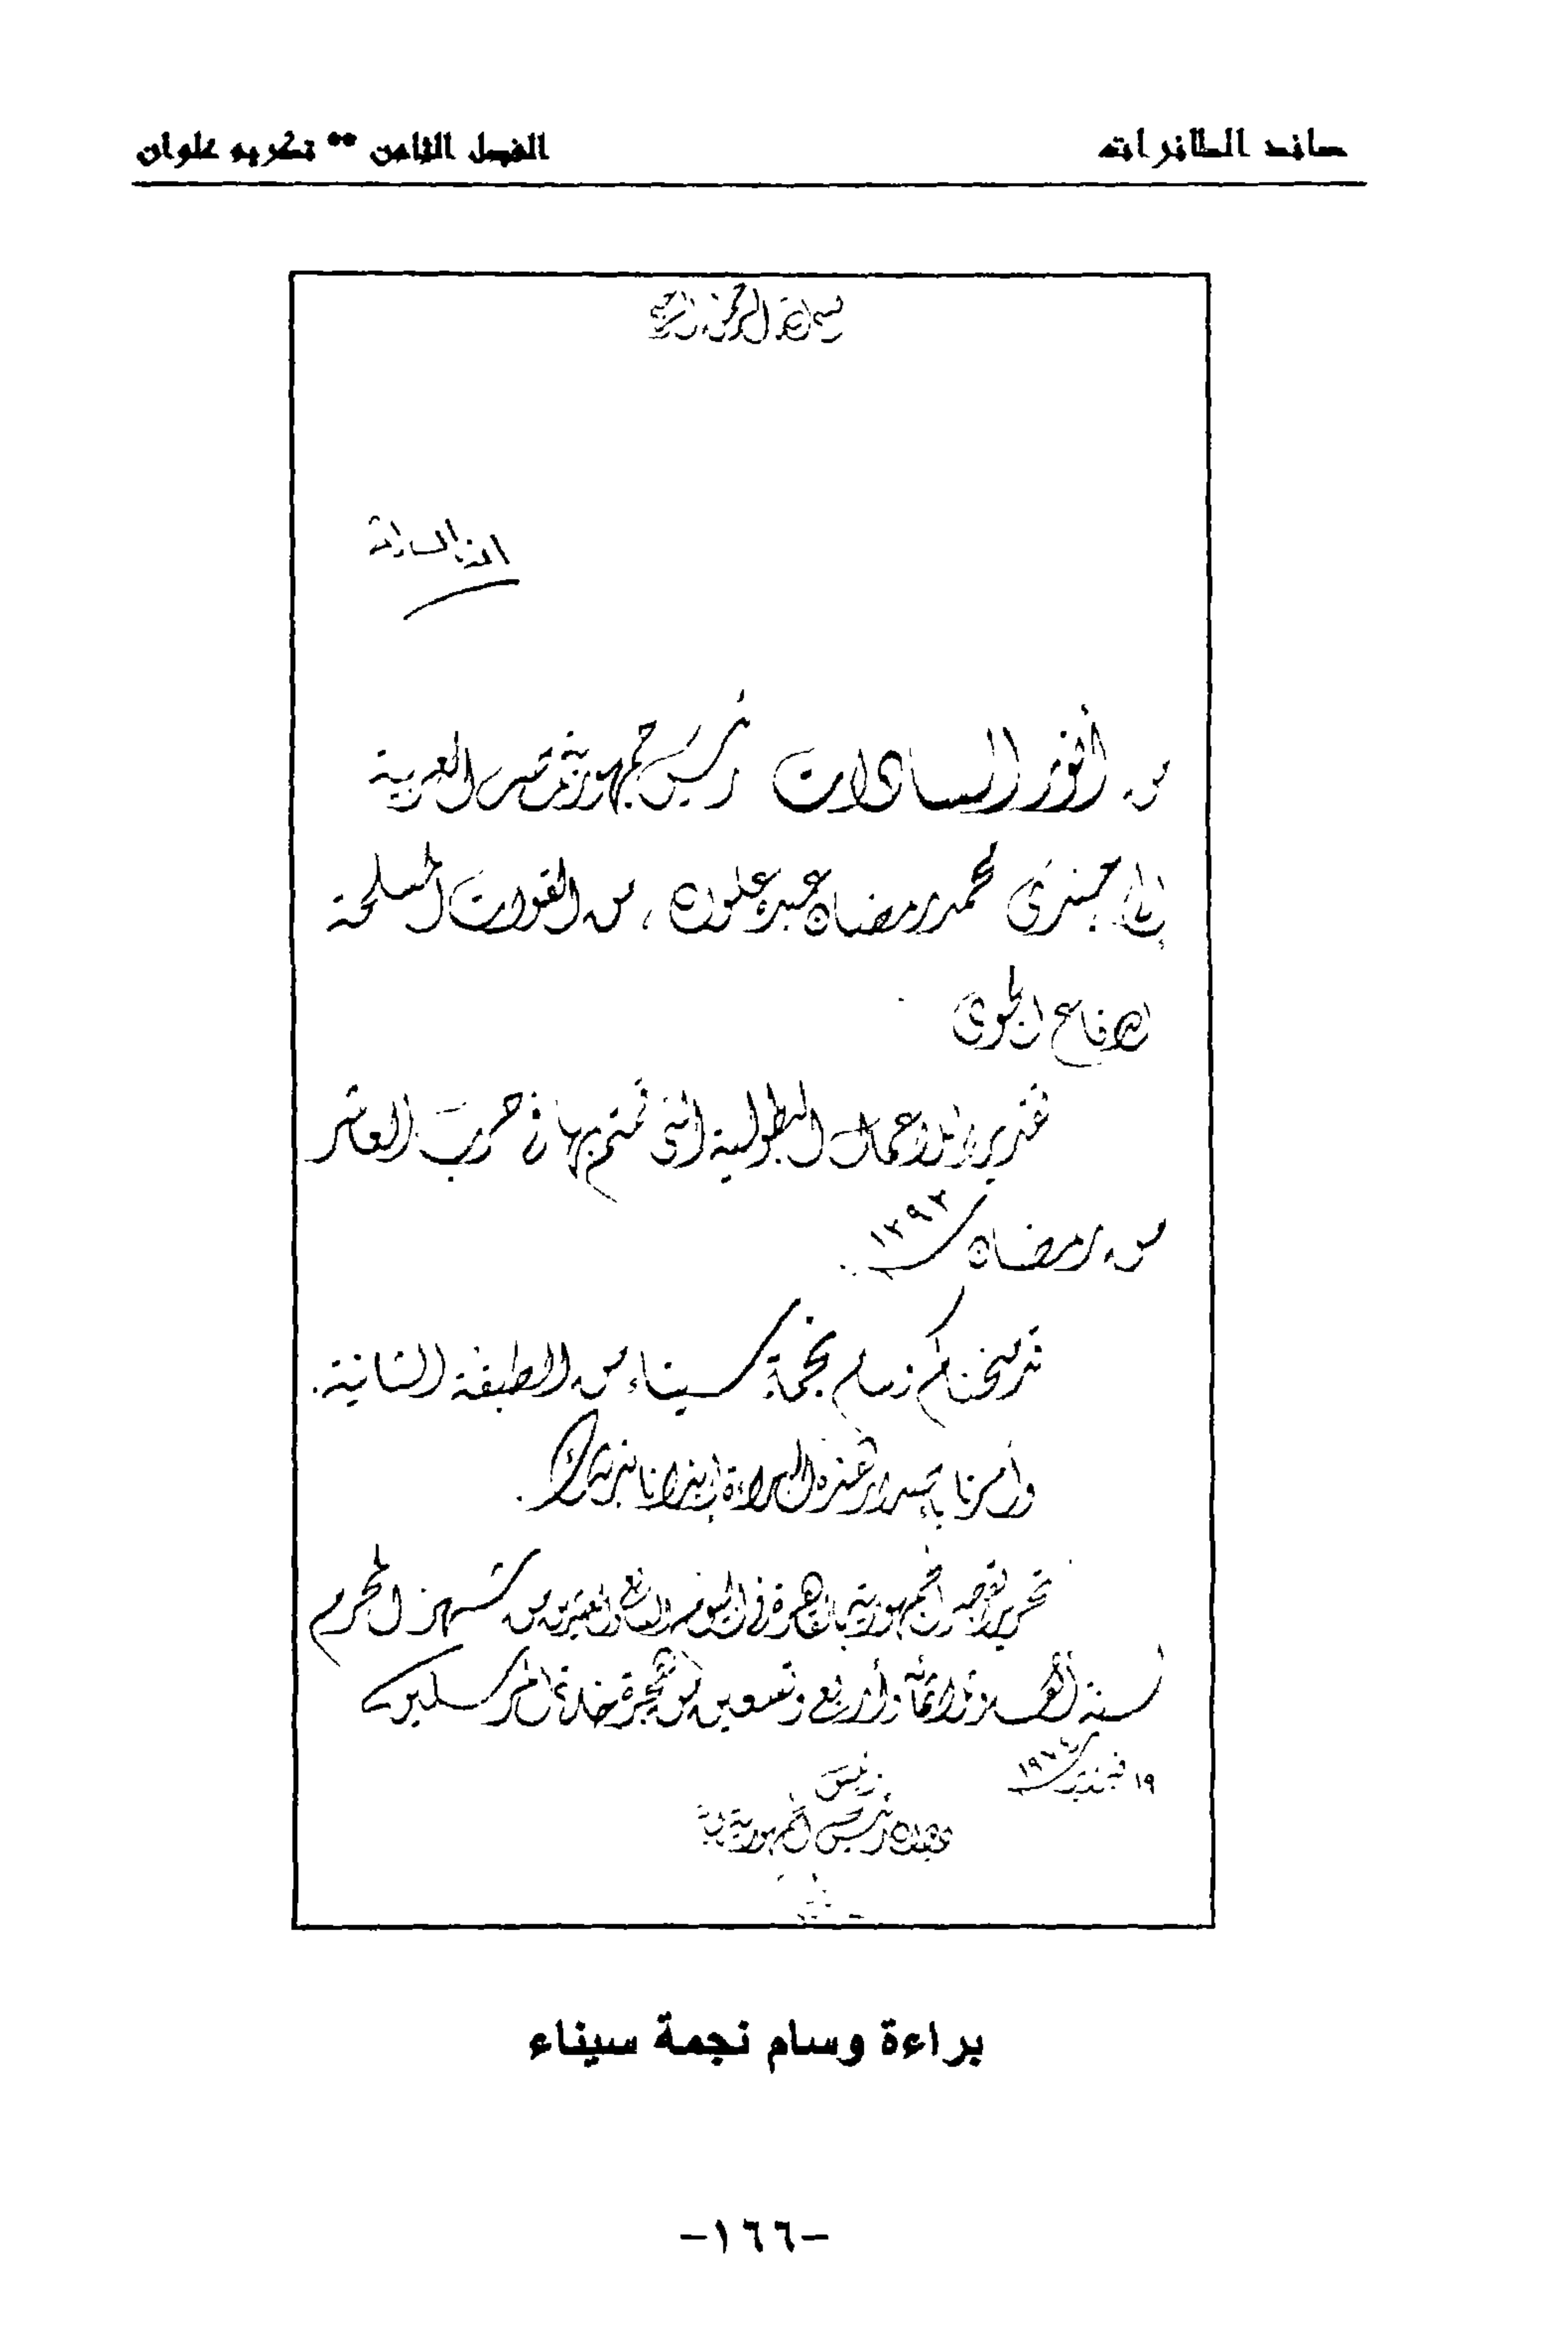 صائد الطائرات
الفصل الثامن ** تكريم علوان
بسم الله الرحمن الرحيم
أنور السادات
من أنور السادات رئيس جمهورية مصر العربية
إلى جندى محمد رمضان عيد علوان ، من القوات المسلحة
الدفاع الجوى
تقديرا للأعمال البطولية التى قمتم بها فى حرب العاشر
من رمضان ١٣٩٣
قد منحناكم وسام نجمة سيناء من الطبقة الثانية .
وأمرنا بإصدار هذه البراءة إيذانا بذلك .
تحريرا بقصر الجمهورية بالقاهرة فى اليوم السابع والعشرين من شهر المحرم
لسنة ألف وثلاثمائة وأربع وتسعين من هجرة خاتم المرسلين
١٩ فبراير ١٩٧٤
رئيس
ديوان رئيس الجمهورية
براءة وسام نجمة سيناء
-١٦٦-